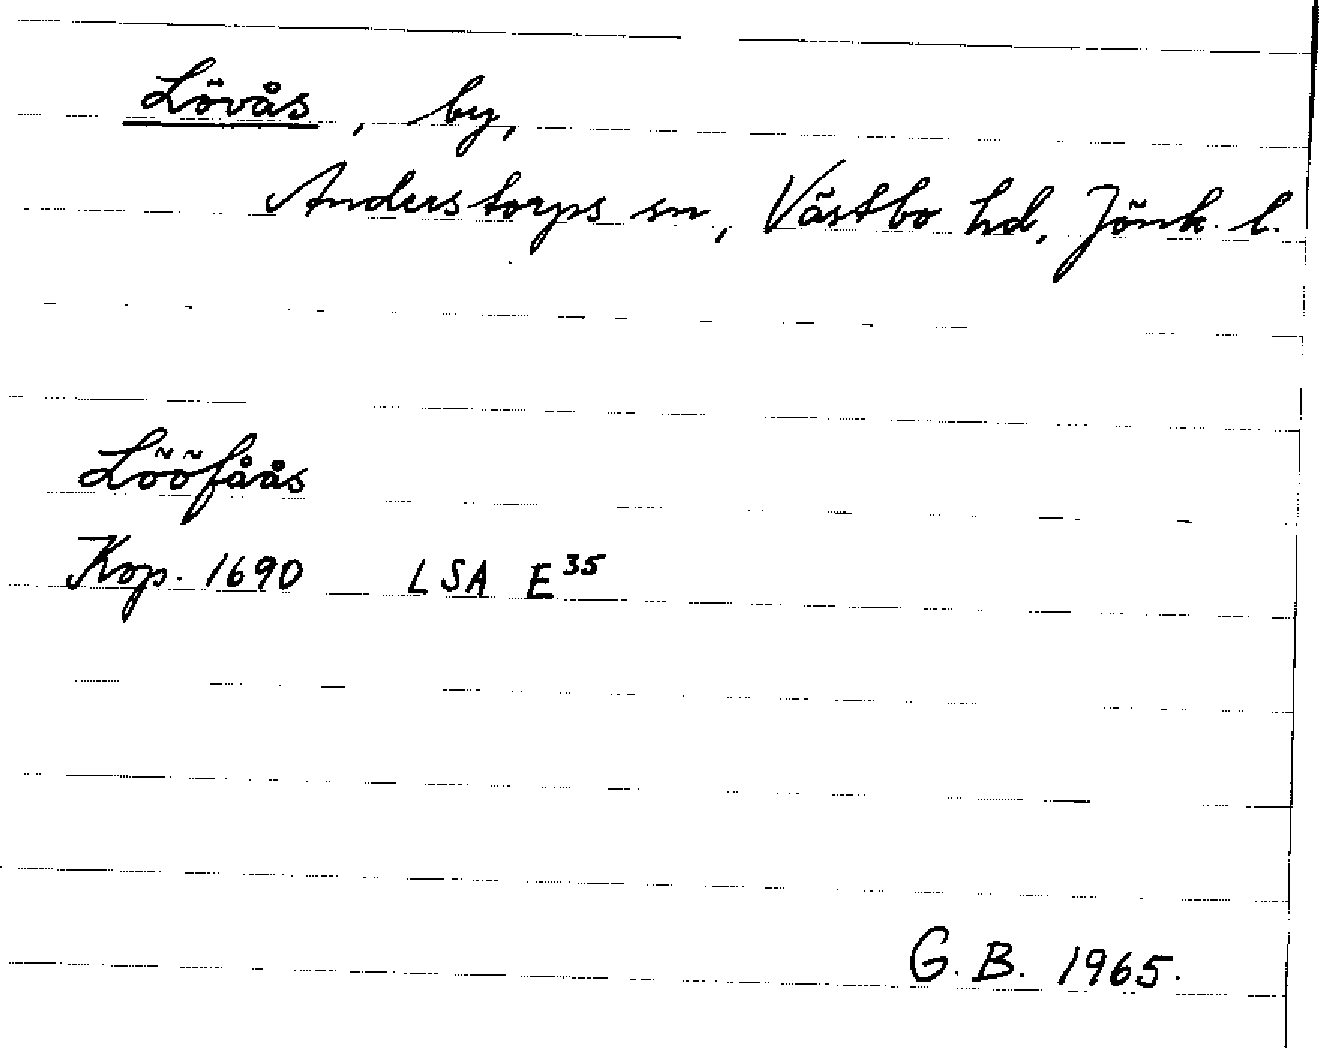 Lövås, by,
Anderstorps sn, Västbo hd, Jönk. l.
Lööfåås
Kop. 1690 LSA E³⁵
G. B. 1965.